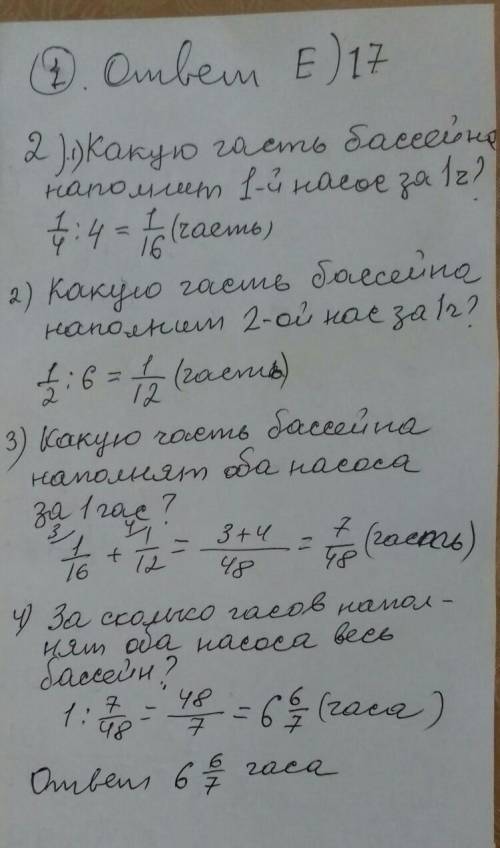 (1). Ответ Е) 17
2).1) Какую часть бассейна
наполнит 1-й насос за 1ч?
1/4 : 4 = 1/16 (часть)
2) Какую часть бассейна
наполнит 2-ой нас за 1ч?
1/2 : 6 = 1/12 (часть)
3) Какую часть бассейна
наполнят оба насоса
за 1 час?
3/ 1/16 + 4/ 1/12 = (3+4)/48 = 7/48 (часть)
4) За сколько часов напол-
нят оба насоса весь
бассейн?
1 : 7/48 = 48/7 = 6 6/7 (часа)
Ответ 6 6/7 часа